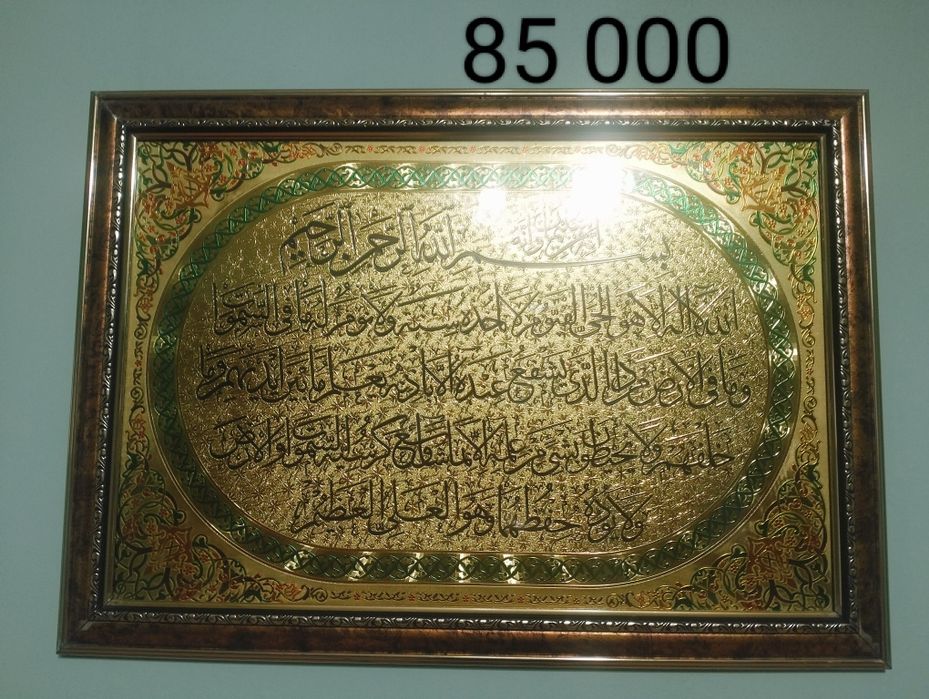 85 000
بسم الله الرحمن الرحيم
الله لا اله الا هو الحي القيوم لا تاخذه سنة ولا نوم له ما في السموات
وما في الارض من ذا الذي يشفع عنده الا باذنه يعلم ما بين ايديهم وما
خلفهم ولا يحيطون بشئ من علمه الا بما شاء وسع كرسيه السموات والارض
ولا يؤده حفظهما وهو العلي العظيم